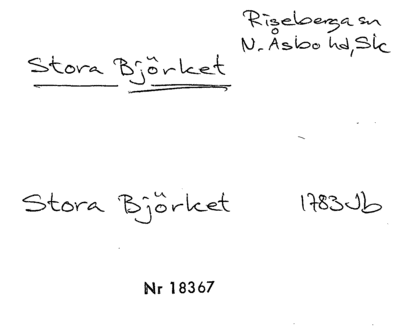 Riseberga sn
N. Åsbo hd, Sk
Stora Björket
Stora Björket 1783 Jb
Nr 18367